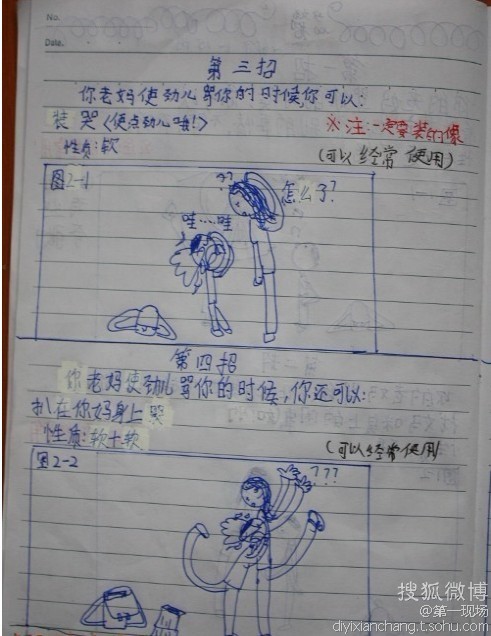 No.
Date.
第三招
你老妈使劲儿骂你的时候,你可以:
装哭<使点劲儿哦!>
※注:一定要装的像
性质:软
(可以经常使用)
图2-1
??
怎么了?
哇…哇
第四招
你老妈使劲儿骂你的时候,你还可以:
扒在你妈身上哭
性质:软+软
(可以经常使用
图2-2
???
搜狐微博
@第一现场
diyixianchang.t.sohu.com